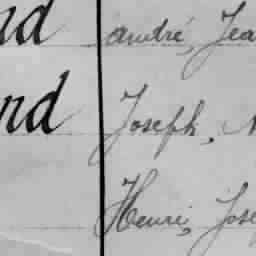 nd André, Jea
nd Joseph, N
Henri, Jose